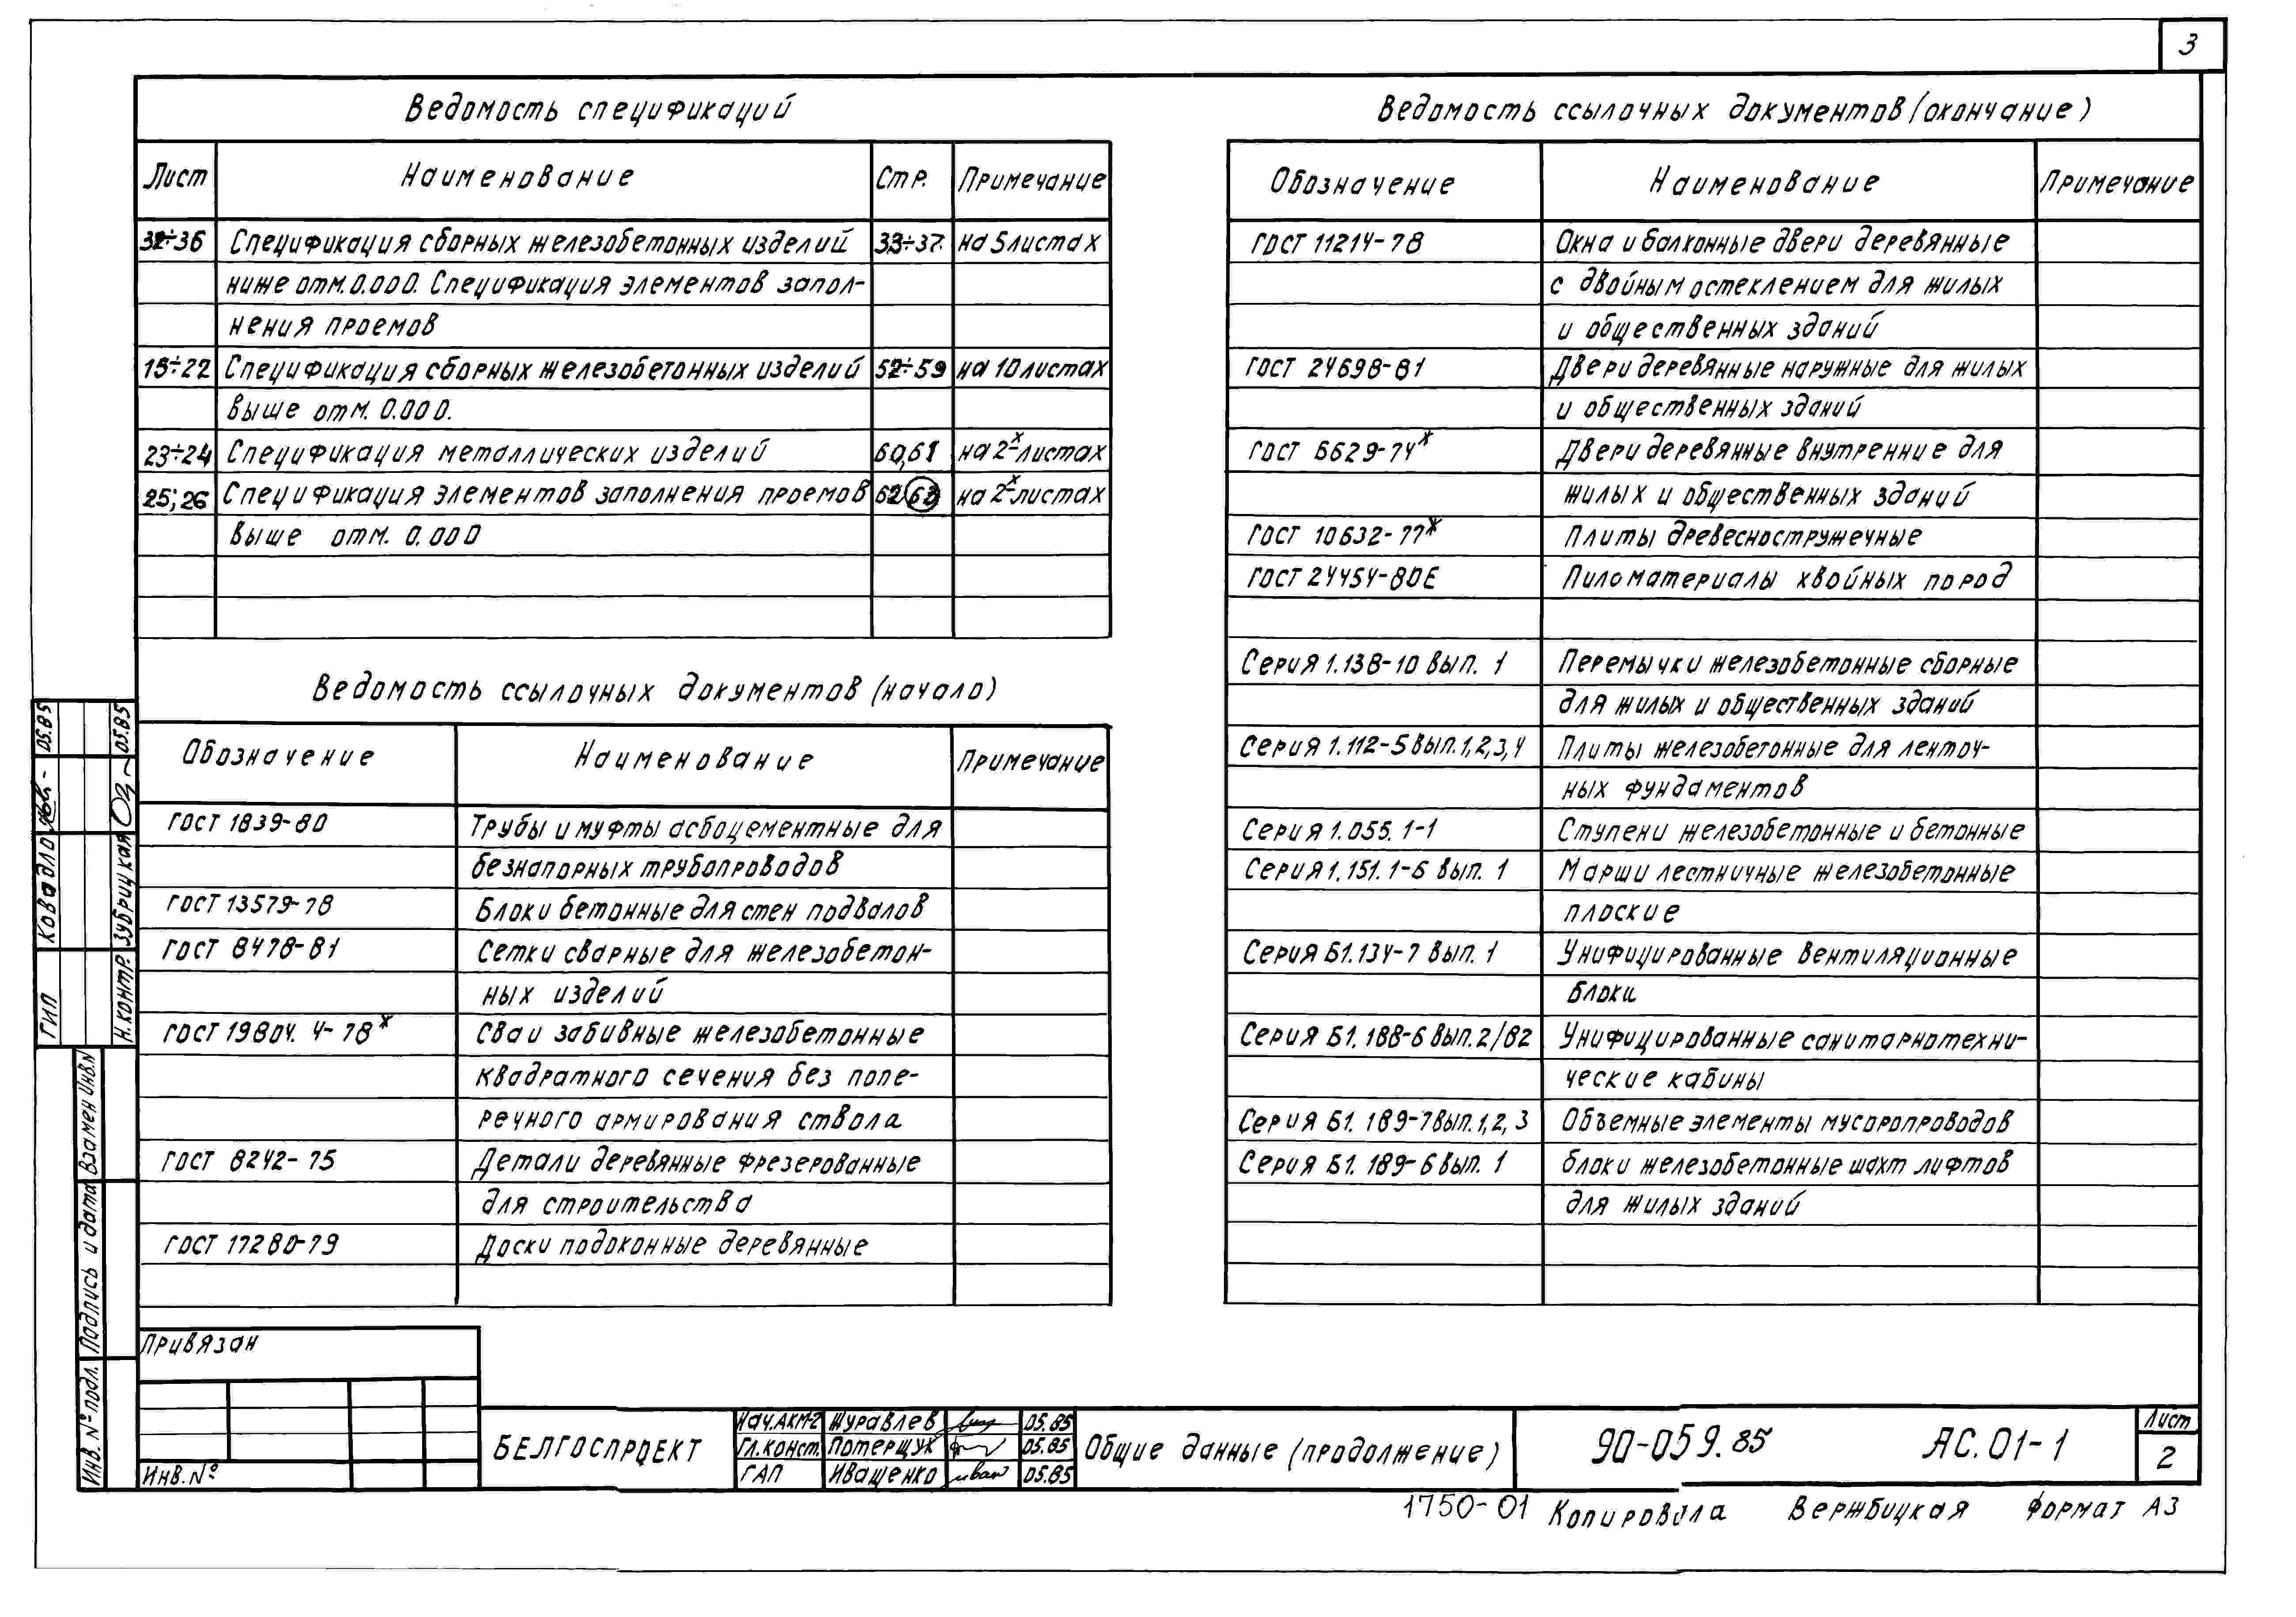 3
Ведомость спецификаций
Лист Наименование Стр. Примечание
32÷36 Спецификация сборных железобетонных изделий 33÷37. на 5листах
ниже отм.0.000. Спецификация элементов запол-
нения проемов
15÷22 Спецификация сборных железобетонных изделий 52÷59 на 10листах
выше отм. 0.000.
23÷24 Спецификация металлических изделий 60,61 на 2х листах
25;26 Спецификация элементов заполнения проемов 62 63 на 2х листах
выше отм. 0.000
Ведомость ссылочных документов (начало)
Обозначение Наименование Примечание
ГОСТ 1839-80 Трубы и муфты асбоцементные для
безнапорных трубопроводов
ГОСТ 13579-78 Блоки бетонные для стен подвалов
ГОСТ 8478-81 Сетки сварные для железобетон-
ных изделий
ГОСТ 19804.4-78* Сваи забивные железобетонные
квадратного сечения без попе-
речного армирования ствола
ГОСТ 8242-75 Детали деревянные фрезерованные
для строительства
ГОСТ 17280-79 Доски подоконные деревянные
Ведомость ссылочных документов (окончание)
Обозначение Наименование Примечание
ГОСТ 11214-78 Окна и балконные двери деревянные
с двойным остеклением для жилых
и общественных зданий
ГОСТ 24698-81 Двери деревянные наружные для жилых
и общественных зданий
ГОСТ 6629-74* Двери деревянные внутренние для
жилых и общественных зданий
ГОСТ 10632-77* Плиты древесностружечные
ГОСТ 24454-80Е Пиломатериалы хвойных пород
Серия 1.138-10 вып. 1 Перемычки железобетонные сборные
для жилых и общественных зданий
Серия 1.112-5 вып.1,2,3,4 Плиты железобетонные для ленточ-
ных фундаментов
Серия 1.055.1-1 Ступени железобетонные и бетонные
Серия 1.151.1-6 вып. 1 Марши лестничные железобетонные
плоские
Серия Б1.134-7 вып. 1 Унифицированные вентиляционные
блоки
Серия Б1.188-6 вып.2/82 Унифицированные санитарнотехни-
ческие кабины
Серия Б1.189-7вып.1,2,3 Объемные элементы мусоропроводов
Серия Б1.189-6 вып. 1 блоки железобетонные шахт лифтов
для жилых зданий
ГИП Ковадло 05.85
Н.контр. Зубрицкая 05.85
Взамен инв.N
Подпись и дата
Инв. № подл.
Привязан
Инв.№
БЕЛГОСПРОЕКТ
Нач.АКМ-2 Журавлев 05.85
Гл.конст. Потерщук 05.85
ГАП Иващенко 05.85
Общие данные (продолжение)
90-059.85 АС.01-1
Лист
2
1750-01 Копировала Вержбицкая формат А3